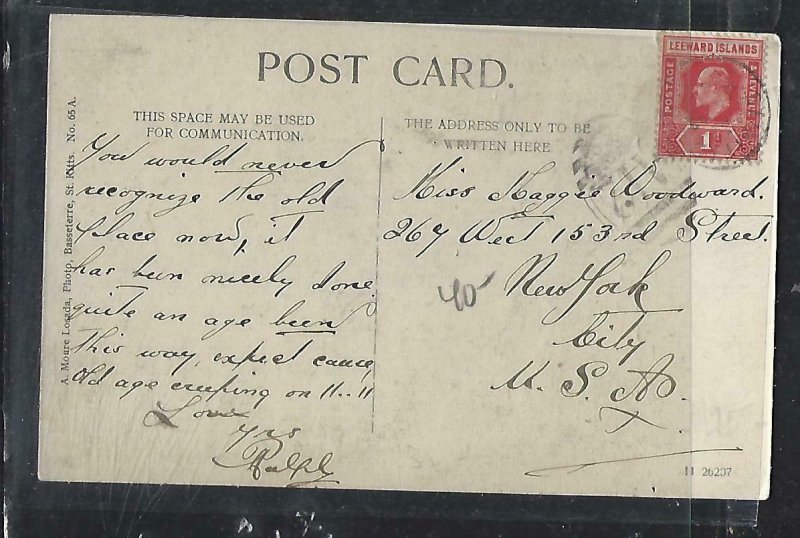 POST CARD.
THIS SPACE MAY BE USED
FOR COMMUNICATION.
THE ADDRESS ONLY TO BE
WRITTEN HERE
LEEWARD ISLANDS
POSTAGE
& REVENUE
1d
A. Moure Losada, Photo, Basseterre, St. Kitts. No. 65 A.
You would never
recognize the old
place now, it
has been nicely done
quite an age been
this way, expect cause,
old age creeping on !!..!!
Love
Yrs
Ralph
Miss Maggie Woodward.
267 West 153rd Street.
New York
City
U. S. A.
40
H 26207